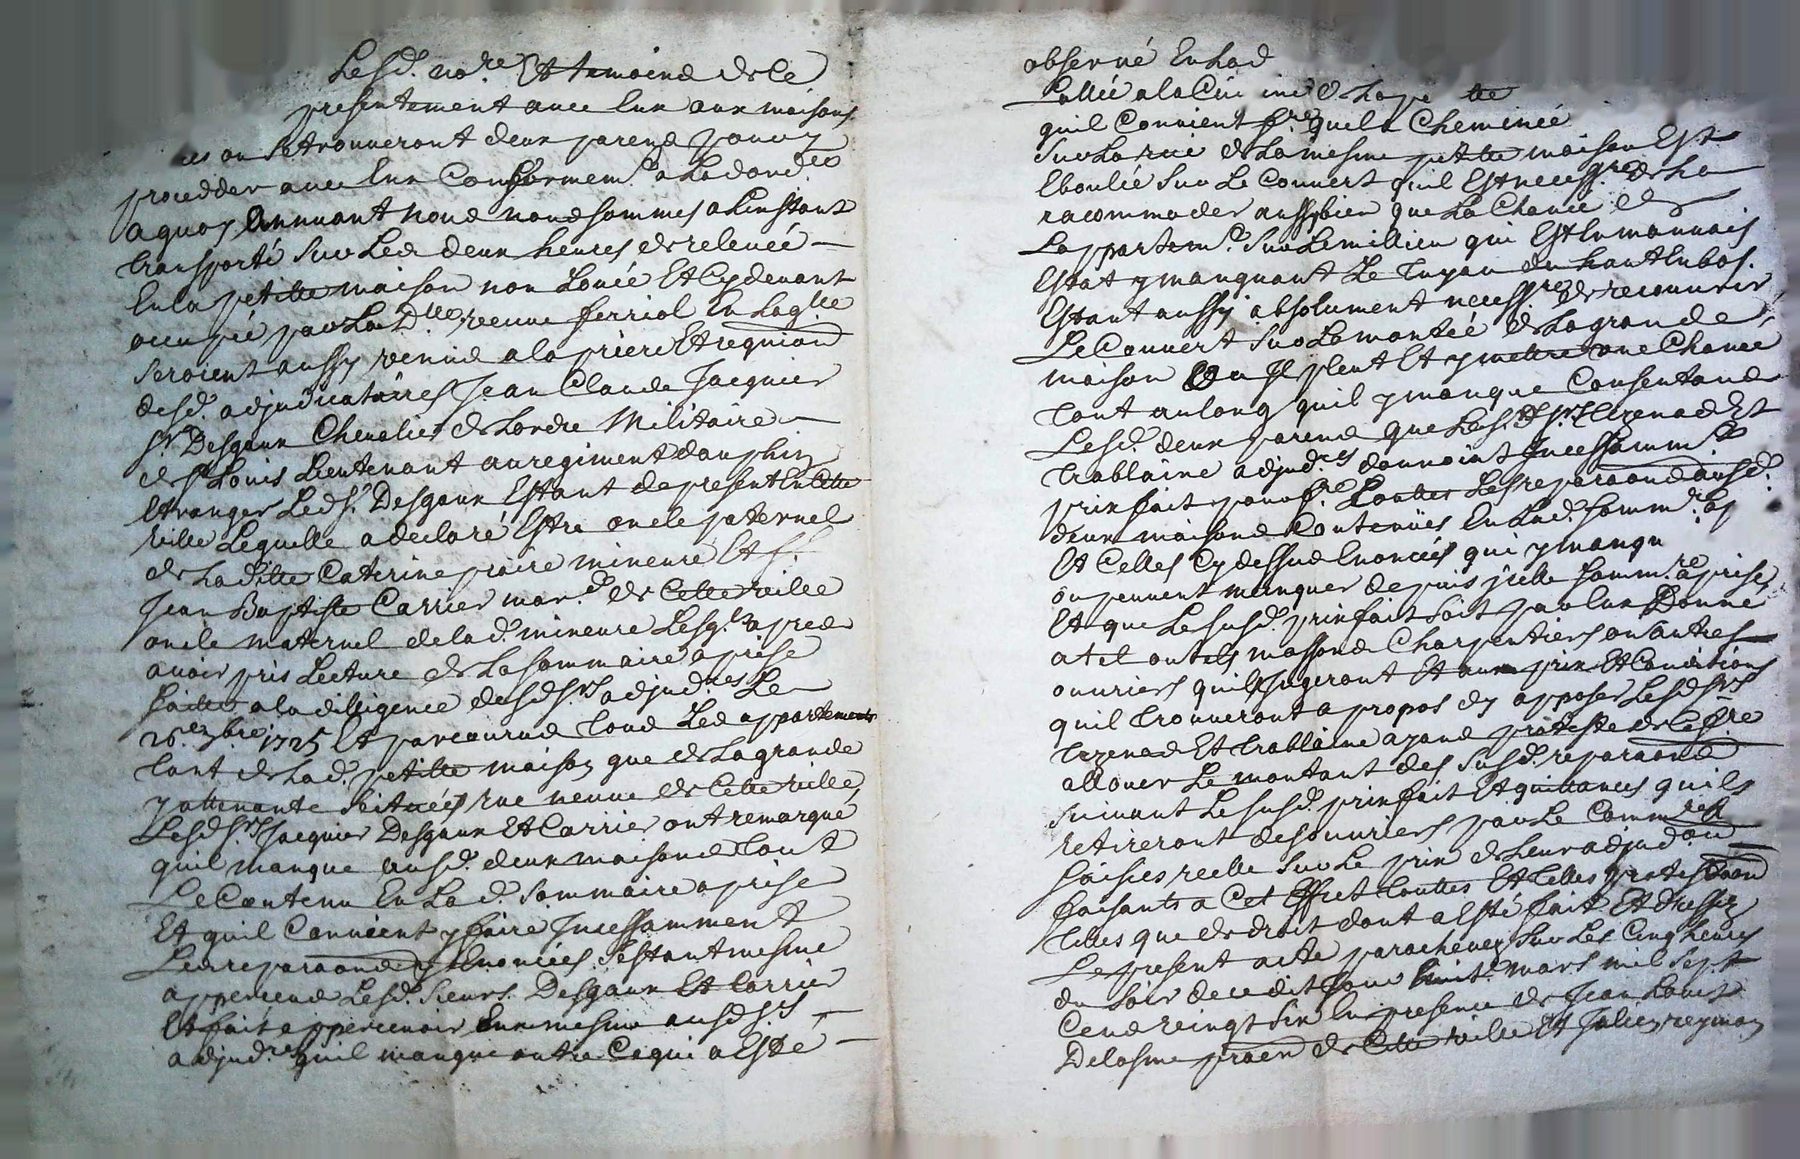 Lesd. no.re Et temoins de ce
presentement avec Eux aux maisons
ou se trouveront deux parens pour y
procedder avec Eux Conformem.t a Lad ord.ce
aquoy annuant nous nous sommes a Linstant
transporté Sur Les deux heures de relevée
En la petitte maison non Louée Et Cydevant
occupée par La D.lle veuve ferriol En Laq.lle
Seroient aussy venus a la priere Et requi.on
desd. adjudicataires Jean Claude Jacquier
S.r Desgaux Chevalier de Lordre Militaire
de S.t Louis Lieutenant au regiment dauphin
Etranger Led S.r Desgaux Estant de present En Cette
ville Lequelle a declaré Estre oncle paternel
de Laditte Caterine mineure Et S.r
Jean Baptiste Carrier mar.d de Cette ville
oncle maternel de la d. mineure Lesq.ls apres
avoir pris Lecture de La sommaire aprise
faitte a la dilligence desd S.rs adjud.res Le
1725 Et parcourus tous Les appartements
tant de Lad. petitte maison que de La grande
y attenante Scituées rue neuve de Cette ville,
Lesd S.rs Jacquier Desgaux Et Carrier ont remarqué
quil manque ausd. deux maisons tout
Le Contenu En Lad. Sommaire aprise
Et quil Convient y faire Incessamment
Les reparaons y Enoncées S'estant mesme
apperceus Lesd. Sieurs Desgaux Et Carrier
Et fait appercevoir Eux mesme ausd S.rs
adjud.res quil manque outre Ce qui a Esté
observé En Lad
quil Convient f.re que la Cheminée
Sur La rue de La mesme petitte maison Est
Eboulée Sur Le Couvert quil Est necess.re de La
racommoder aussy bien que La Chanée de
Lappartem.t Sur Le millieu qui Est En mauvais
Estat y manquant Le Tuyau du haut En bas.
Estant aussy absolument necess.re de recouvrir
Le Couvert Sur La montée de La grande
maison Ou Il pleut Et y mettre une Chanée
tout au long quil y manque Consentans
Lesd. deux parens que Lesd. S.rs Tezenas Et
trablaine adjud.res donnoint Incessamm.t
prix fait pour f.re touttes Les reparaons ausd.
deux maisons Contenues En Lad. Somm.re ap
Et Celles Cy dessus Enoncées qui y manqu
ou peuvent manquer depuis jcelle Somm.re aprise,
Et que Le susd. prix fait soit par Eux Donné
a tel ou tels massons Charpentiers ou autres
ouvriers quils Jugeront Et aux prix Et Conditions
quil trouveront a propos dy apposer Lesd S.rs
Tezenas Et trablaine ayans protesté de Ce f.re
allouer Le montant des Susd. reparaons
Suivant Le susd. prix fait Et quittances quils
retireront des ouvriers par Le Comm.re a
Saisies reelle Sur Le prix de Leur adjud.on
faisants a Cet Effet touttes Et telles protestaons
telles que de droit dont a Esté fait Et dressé
Le present acte parachevé Sur Les Cinq heures
du Soir de ce dit Jour huit.e mars mil Sept
Cens veingt Six En presence de Jean Louis
Delosme praen de Cette ville Et Julien reymon